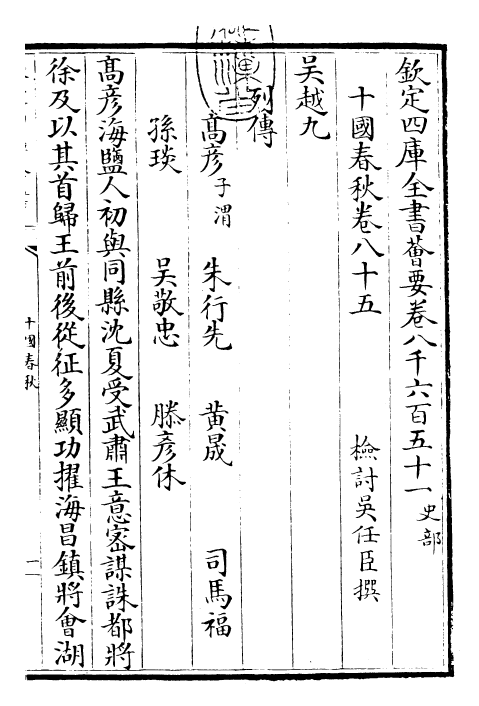 欽定四庫全書薈要卷八千六百五十一 史部
十國春秋卷八十五
檢討吳任臣撰
吳越九
列傳
高彥 子渭 朱行先 黃晟 司馬福
孫琰 吳敬忠 滕彥休
髙彥海鹽人初與同縣沈夏受武肅王意宻謀誅都將
徐及以其首歸王前後從征多顯功擢海昌鎮將會湖
十國春秋
一